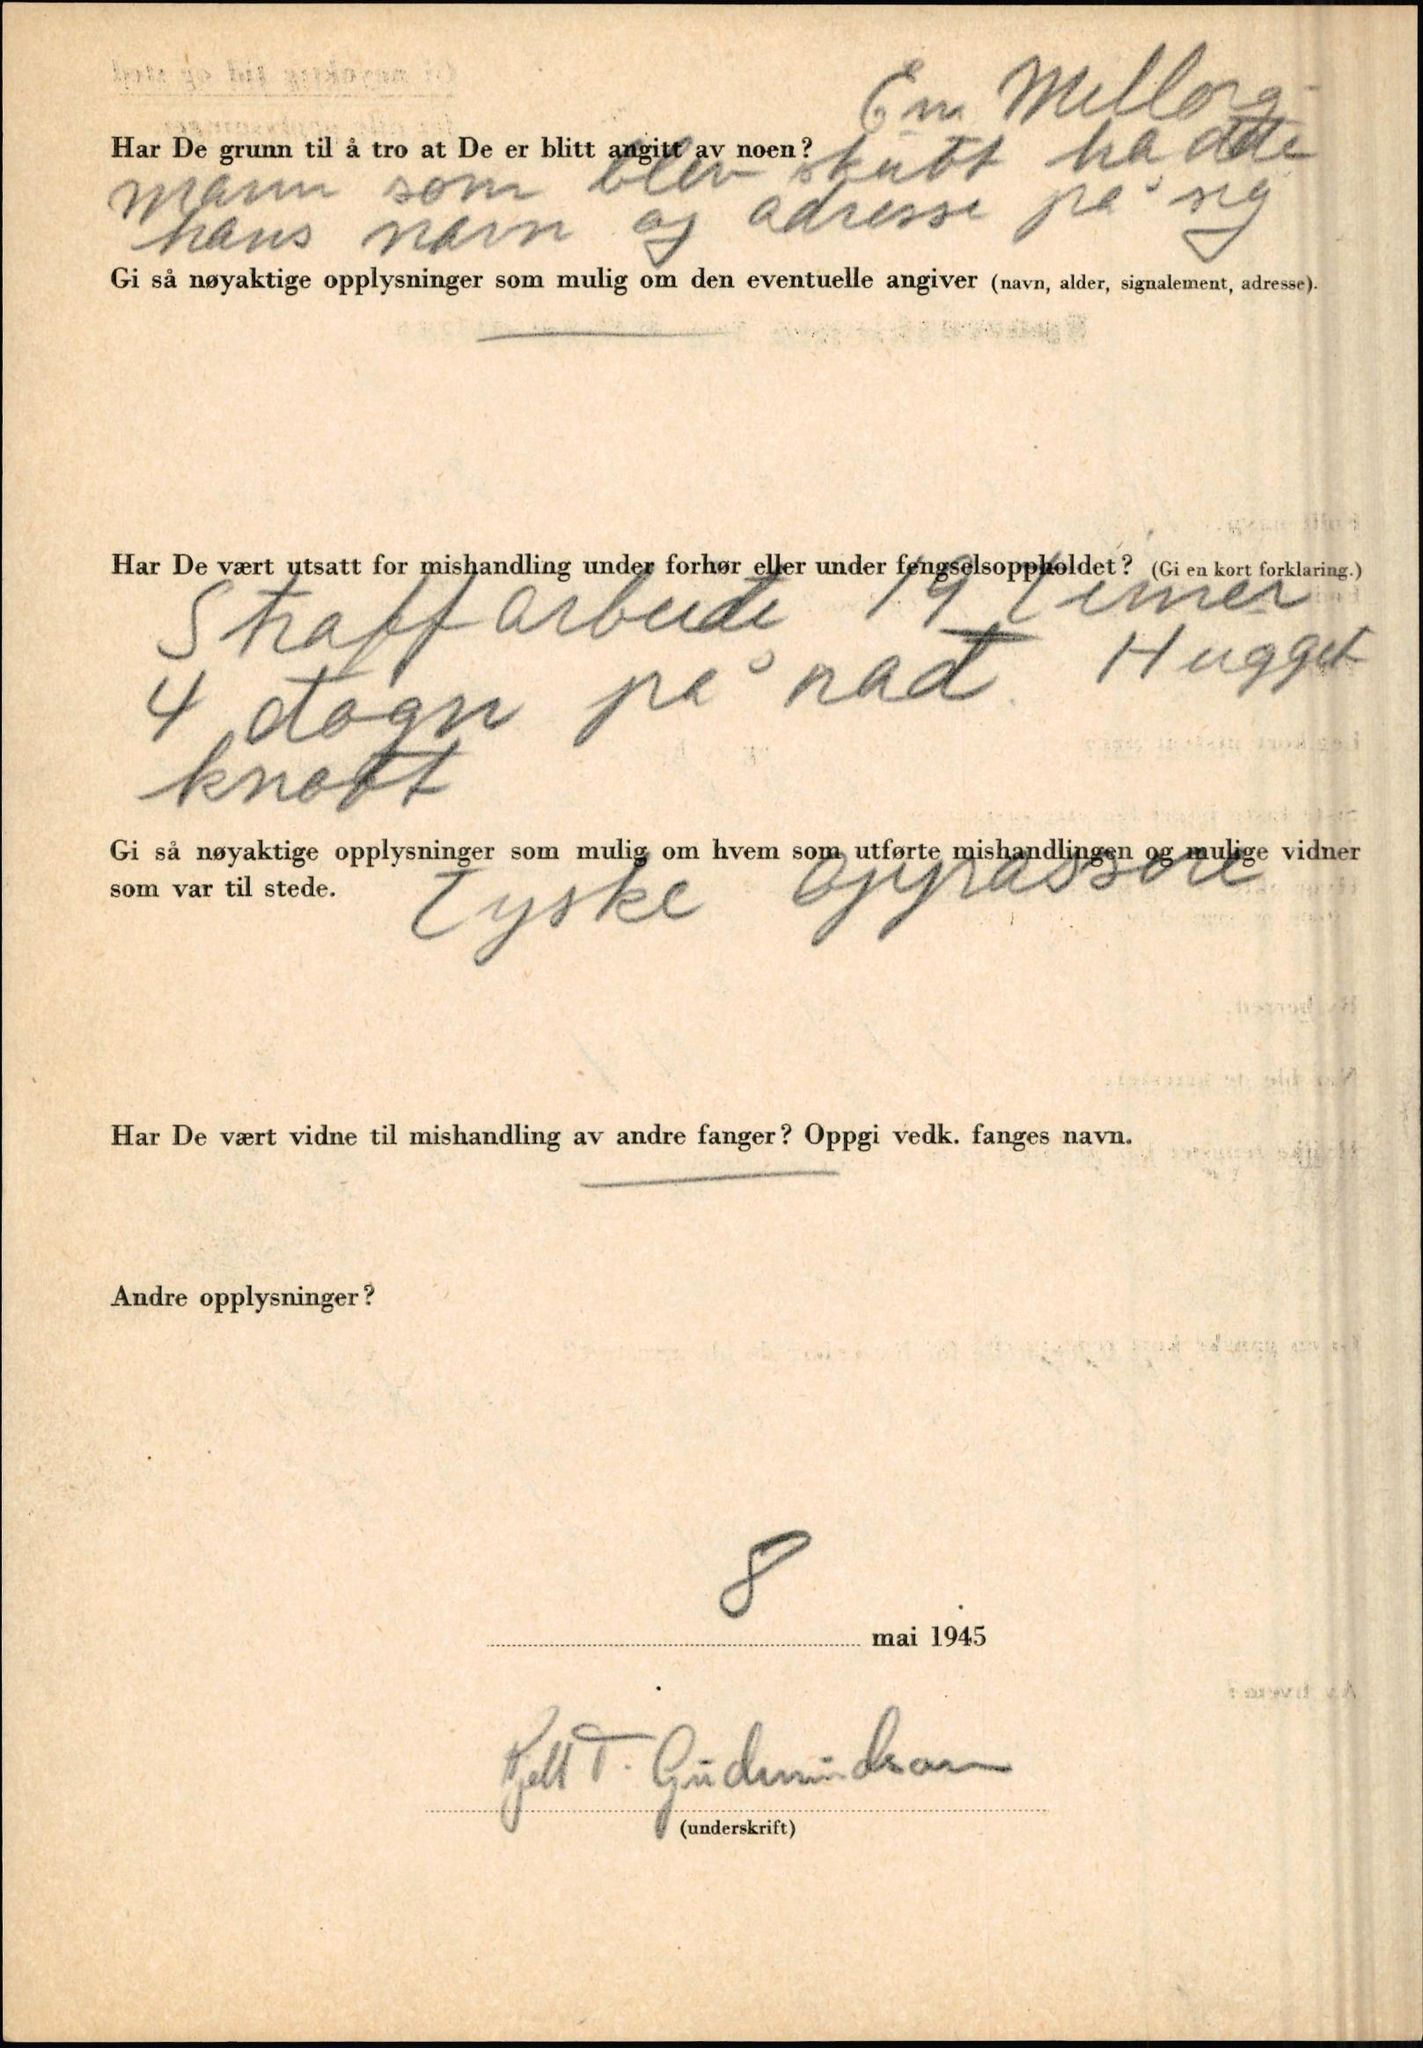 En Millorg-
Har De grunn til å tro at De er blitt angitt av noen?
mann som blev skutt hadde
hans navn og adresse på sig
Gi så nøyaktige opplysninger som mulig om den eventuelle angiver (navn, alder, signalement, adresse).
Har De vært utsatt for mishandling under forhør eller under fengselsoppholdet? (Gi en kort forklaring.)
Straffarbeide 19 timer
4 døgn på rad. Hugget
knott
Gi så nøyaktige opplysninger som mulig om hvem som utførte mishandlingen og mulige vidner
som var til stede. Tyske oppassere
Har De vært vidne til mishandling av andre fanger? Oppgi vedk. fanges navn.
Andre opplysninger?
8
mai 1945
Kjell T. Gudmundsen
(underskrift)